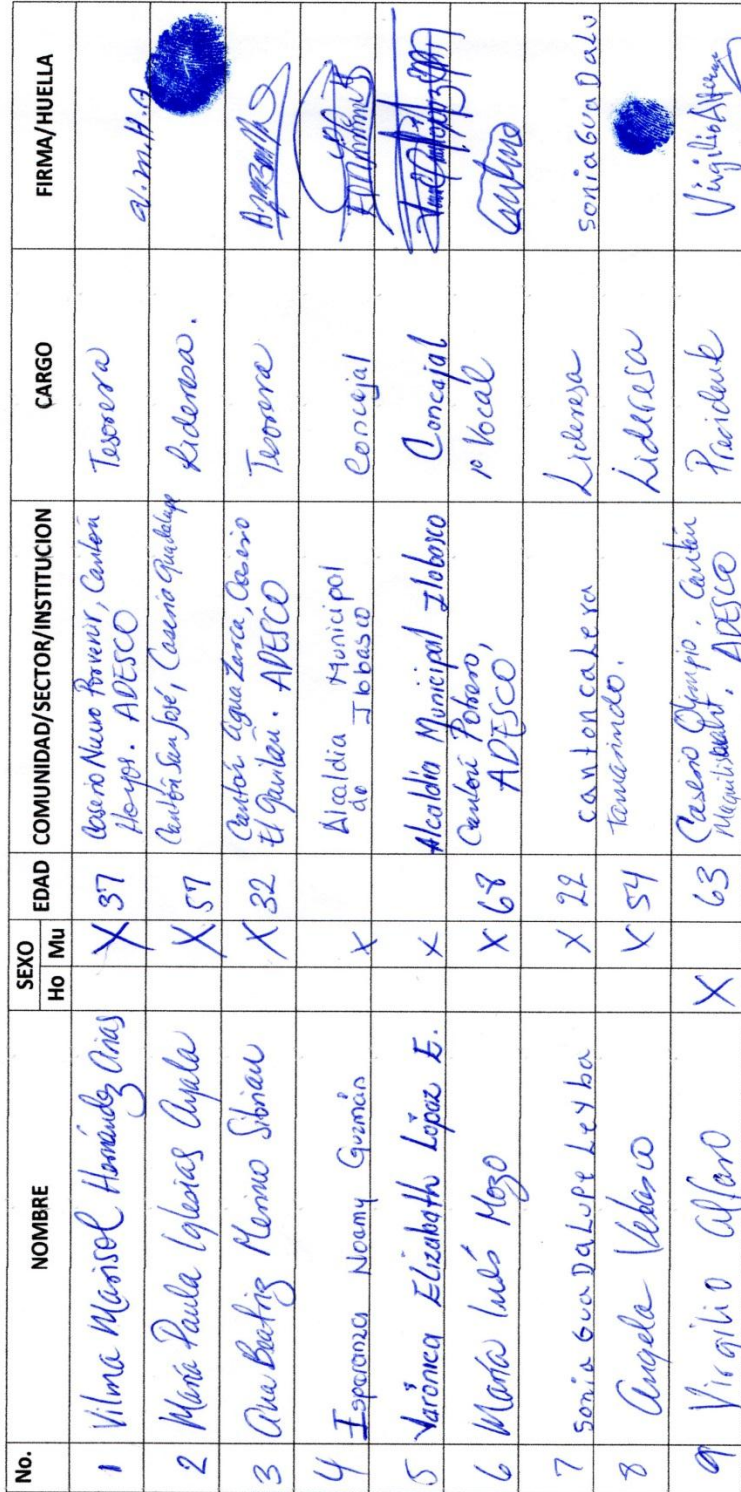 No. NOMBRE SEXO EDAD COMUNIDAD/SECTOR/INSTITUCION CARGO FIRMA/HUELLA
Ho Mu
1 Vilma Marisol Hernández Arias X 37 Caserío Nuevo Porvenir, Cantón Tesorera V.M.H.A
Hoyos. ADESCO
2 María Paula Iglesias Ayala X 57 Cantón San José, Caserío Guadalupe Lideresa.
3 Ana Beatriz Merino Sibrian X 32 Cantón Agua Zarca, Caserío Tesorera
El Gavilan. ADESCO
4 Esperanza Noamy Guzmán X Alcaldia Municipal Concejal
de Ilobasco
5 Varónica Elizabath López E. X Alcaldia Municipal Ilobasco Concejal
6 María Inés Mozo X 68 Cantón Potrero, 1º Vocal
ADESCO
7 sonia GuaDaLuPe Leyba X 22 canton caLera Lideresa sonia Gua DaLu
8 Angela Velasco X 54 Tamarindo. Lideresa
9 Virgilio Alfaro X 63 Caserío Olimpio. Cantón Presidente Virgilio
ADESCO